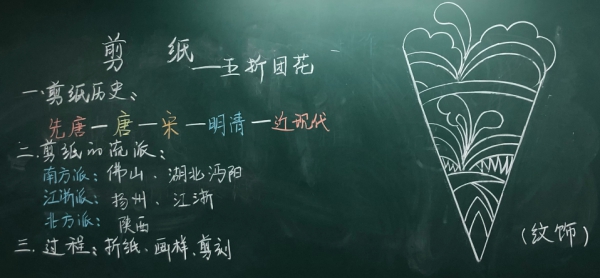 剪纸——五折团花
一.剪纸历史:
先唐—唐—宋—明清—近现代
二.剪纸的流派:
南方派:佛山、湖北沔阳
江浙派:扬州、江浙
北方派:陕西
三.过程:折纸、画样、剪刻
(纹饰)